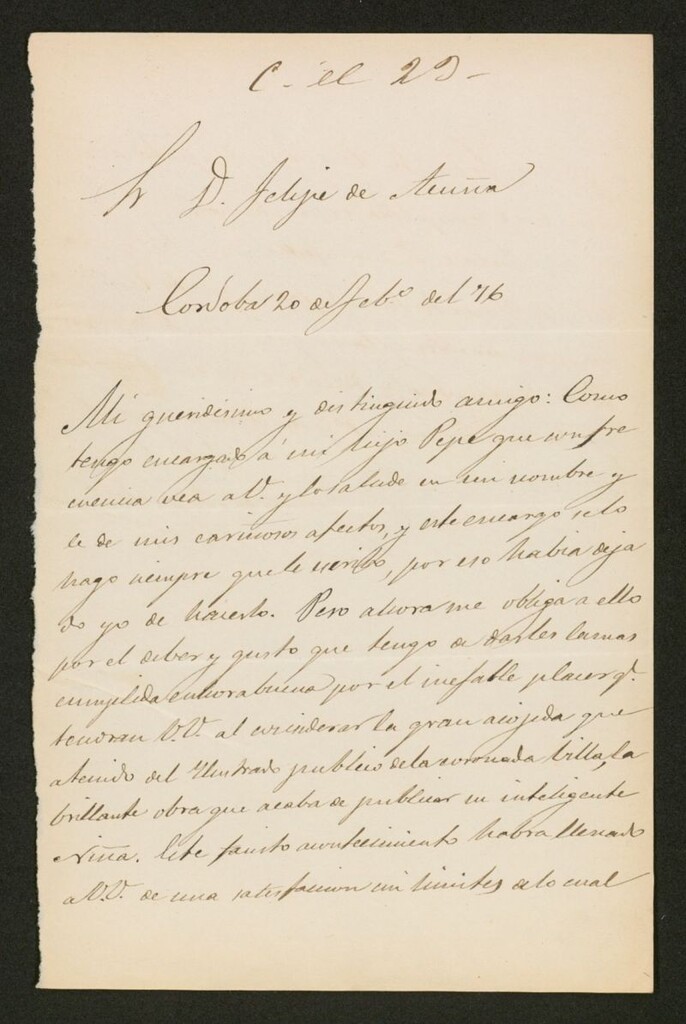 C - el 29 -
Sr D. Felipe de Acuña
Cordoba 20 de Febº del 76
Mi queridisimo y distinguido amigo: Como
tengo encargado á mi hijo Pepe que con fre
cuencia vea a V. y lo salude en mi nombre y
le de mis cariñosos afectos, y este encargo selo
hago siempre que le escribo, por eso habia deja
do yo de hacerlo. Pero ahora me obliga a ello
por el deber y gusto que tengo de darles la mas
cumplida enhorabuena por el inefable placer q.
tendran V.V. al considerar la gran acojida que
a tenido del Ilustrado publico de la coronada Villa, la
brillante obra que acaba de publicar su inteligente
Niña. Este fausto acontecimiento habra llenado
a V.V. de una satisfacion sin limites de lo cual